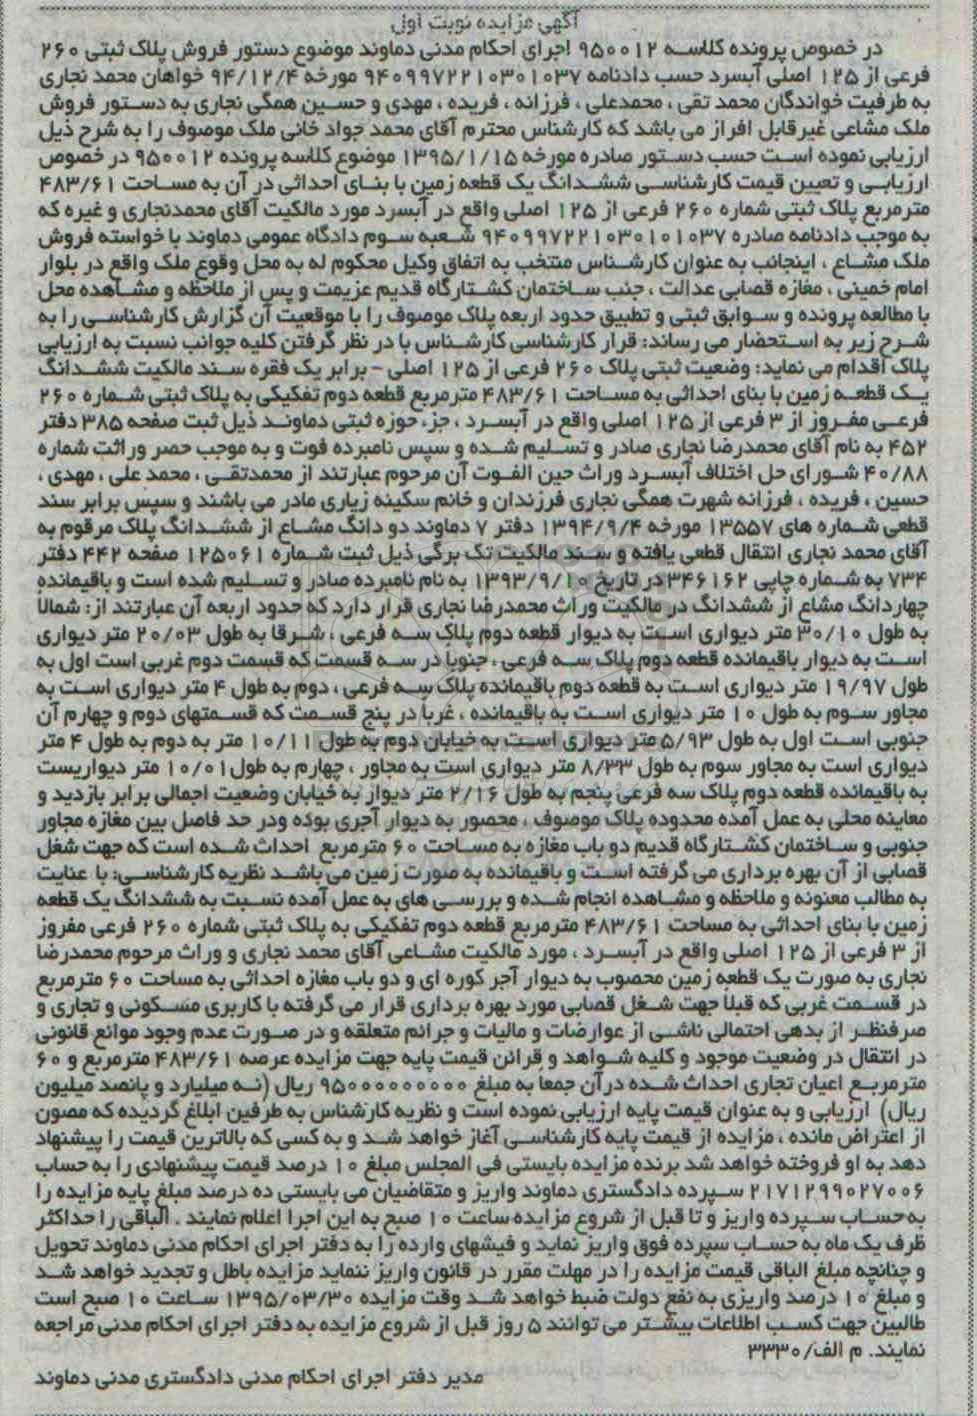 آگهی مزایده نوبت اول
در خصوص پرونده کلاسه ۹۵۰۰۱۲ اجرای احکام مدنی دماوند موضوع دستور فروش پلاک ثبتی ۲۶۰
فرعی از ۱۲۵ اصلی آبسرد حسب دادنامه ۹۴۰۹۹۷۲۲۱۰۳۰۱۰۳۷ مورخه ۹۴/۱۲/۴ خواهان محمد نجاری
به طرفیت خواندگان محمد تقی ، محمدعلی ، فرزانه ، فریده ، مهدی و حسین همگی نجاری به دستور فروش
ملک مشاعی غیرقابل افراز می باشد که کارشناس محترم آقای محمد جواد خانی ملک موصوف را به شرح ذیل
ارزیابی نموده است حسب دستور صادره مورخه ۱۳۹۵/۱/۱۵ موضوع کلاسه پرونده ۹۵۰۰۱۲ در خصوص
ارزیابی و تعیین قیمت کارشناسی ششدانگ یک قطعه زمین با بنای احداثی در آن به مساحت ۴۸۳/۶۱
مترمربع پلاک ثبتی شماره ۲۶۰ فرعی از ۱۲۵ اصلی واقع در آبسرد مورد مالکیت آقای محمدنجاری و غیره که
به موجب دادنامه صادره ۹۴۰۹۹۷۲۲۱۰۳۰۱۰۱۰۳۷ شعبه سوم دادگاه عمومی دماوند با خواسته فروش
ملک مشاع ، اینجانب به عنوان کارشناس منتخب به اتفاق وکیل محکوم له به محل وقوع ملک واقع در بلوار
امام خمینی ، مغازه قصابی عدالت ، جنب ساختمان کشتارگاه قدیم عزیمت و پس از ملاحظه و مشاهده محل
با مطالعه پرونده و سوابق ثبتی و تطبیق حدود اربعه پلاک موصوف را با موقعیت آن گزارش کارشناسی را به
شرح زیر به استحضار می رساند: قرار کارشناسی کارشناس با در نظر گرفتن کلیه جوانب نسبت به ارزیابی
پلاک اقدام می نماید: وضعیت ثبتی پلاک ۲۶۰ فرعی از ۱۲۵ اصلی - برابر یک فقره سند مالکیت ششدانگ
یک قطعه زمین با بنای احداثی به مساحت ۴۸۳/۶۱ مترمربع قطعه دوم تفکیکی به پلاک ثبتی شماره ۲۶۰
فرعی مفروز از ۳ فرعی از ۱۲۵ اصلی واقع در آبسرد ، جزء حوزه ثبتی دماوند ذیل ثبت صفحه ۳۸۵ دفتر
۴۵۲ به نام آقای محمدرضا نجاری صادر و تسلیم شده و سپس نامبرده فوت و به موجب حصر وراثت شماره
۴۰/۸۸ شورای حل اختلاف آبسرد وراث حین الفوت آن مرحوم عبارتند از محمدتقی ، محمد علی ، مهدی ،
حسین ، فریده ، فرزانه شهرت همگی نجاری فرزندان و خانم سکینه زیاری مادر می باشند و سپس برابر سند
قطعی شماره های ۱۳۵۵۷ مورخه ۱۳۹۴/۹/۴ دفتر ۷ دماوند دو دانگ مشاع از ششدانگ پلاک مرقوم به
آقای محمد نجاری انتقال قطعی یافته و سند مالکیت تک برگی ذیل ثبت شماره ۱۲۵۰۶۱ صفحه ۴۴۲ دفتر
۷۳۴ به شماره چاپی ۳۴۶۱۶۲ در تاریخ ۱۳۹۳/۹/۱۰ به نام نامبرده صادر و تسلیم شده است و باقیمانده
چهاردانگ مشاع از ششدانگ در مالکیت وراث محمدرضا نجاری قرار دارد که حدود اربعه آن عبارتند از: شمالا
به طول ۳۰/۱۰ متر دیواری است به دیوار قطعه دوم پلاک سه فرعی ، شرقا به طول ۲۰/۰۳ متر دیواری
است به دیوار باقیمانده قطعه دوم پلاک سه فرعی ، جنوبا در سه قسمت که قسمت دوم غربی است اول به
طول ۱۹/۹۷ متر دیواری است به قطعه دوم باقیمانده پلاک سه فرعی ، دوم به طول ۴ متر دیواری است به
مجاور سوم به طول ۱۰ متر دیواری است به باقیمانده ، غربا در پنج قسمت که قسمتهای دوم و چهارم آن
جنوبی است اول به طول ۵/۹۳ متر دیواری است به خیابان دوم به طول ۱۰/۱۱ متر به دوم به طول ۴ متر
دیواری است به مجاور سوم به طول ۸/۳۳ متر دیواری است به مجاور ، چهارم به طول ۱۰/۰۱ متر دیواریست
به باقیمانده قطعه دوم پلاک سه فرعی پنجم به طول ۲/۱۶ متر دیوار به خیابان وضعیت اجمالی برابر بازدید و
معاینه محلی به عمل آمده محدوده پلاک موصوف ، محصور به دیوار آجری بوده ودر حد فاصل بین مغازه مجاور
جنوبی و ساختمان کشتارگاه قدیم دو باب مغازه به مساحت ۶۰ مترمربع احداث شده است که جهت شغل
قصابی از آن بهره برداری می گرفته است و باقیمانده به صورت زمین می باشد نظریه کارشناسی: با عنایت
به مطالب معنونه و ملاحظه و مشاهده انجام شده و بررسی های به عمل آمده نسبت به ششدانگ یک قطعه
زمین با بنای احداثی به مساحت ۴۸۳/۶۱ مترمربع قطعه دوم تفکیکی به پلاک ثبتی شماره ۲۶۰ فرعی مفروز
از ۳ فرعی از ۱۲۵ اصلی واقع در آبسرد ، مورد مالکیت مشاعی آقای محمد نجاری و وراث مرحوم محمدرضا
نجاری به صورت یک قطعه زمین محصوب به دیوار آجر کوره ای و دو باب مغازه احداثی به مساحت ۶۰ مترمربع
در قسمت غربی که قبلا جهت شغل قصابی مورد بهره برداری قرار می گرفته با کاربری مسکونی و تجاری و
صرفنظر از بدهی احتمالی ناشی از عوارضات و مالیات و جرائم متعلقه و در صورت عدم وجود موانع قانونی
در انتقال در وضعیت موجود و کلیه شواهد و قرائن قیمت پایه جهت مزایده عرصه ۴۸۳/۶۱ مترمربع و ۶۰
مترمربع اعیان تجاری احداث شده درآن جمعا به مبلغ ۹۵۰۰۰۰۰۰۰۰۰ ریال (نه میلیارد و پانصد میلیون
ریال) ارزیابی و به عنوان قیمت پایه ارزیابی نموده است و نظریه کارشناس به طرفین ابلاغ گردیده که مصون
از اعتراض مانده ، مزایده از قیمت پایه کارشناسی آغاز خواهد شد و به کسی که بالاترین قیمت را پیشنهاد
دهد به او فروخته خواهد شد برنده مزایده بایستی فی المجلس مبلغ ۱۰ درصد قیمت پیشنهادی را به حساب
۲۱۷۱۲۹۹۰۲۷۰۰۶ سپرده دادگستری دماوند واریز و متقاضیان می بایستی ده درصد مبلغ پایه مزایده را
به حساب سپرده واریز و تا قبل از شروع مزایده ساعت ۱۰ صبح به این اجرا اعلام نمایند . الباقی را حداکثر
ظرف یک ماه به حساب سپرده فوق واریز نماید و فیشهای وارده را به دفتر اجرای احکام مدنی دماوند تحویل
و چنانچه مبلغ الباقی قیمت مزایده را در مهلت مقرر در قانون واریز ننماید مزایده باطل و تجدید خواهد شد
و مبلغ ۱۰ درصد واریزی به نفع دولت ضبط خواهد شد وقت مزایده ۱۳۹۵/۰۳/۳۰ ساعت ۱۰ صبح است
طالبین جهت کسب اطلاعات بیشتر می توانند ۵ روز قبل از شروع مزایده به دفتر اجرای احکام مدنی مراجعه
نمایند. م الف/۳۳۳۰
مدیر دفتر اجرای احکام مدنی دادگستری مدنی دماوند